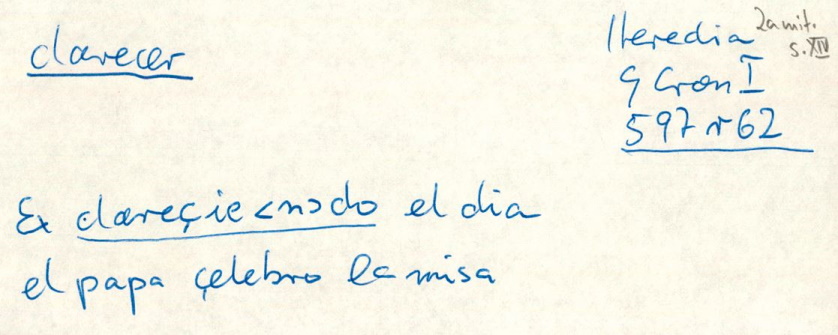 clarecer
Heredia 2a mit.
s. XIV
G Cron I
597 r 62
Et clareçie<n>do el dia
el papa çelebro la misa